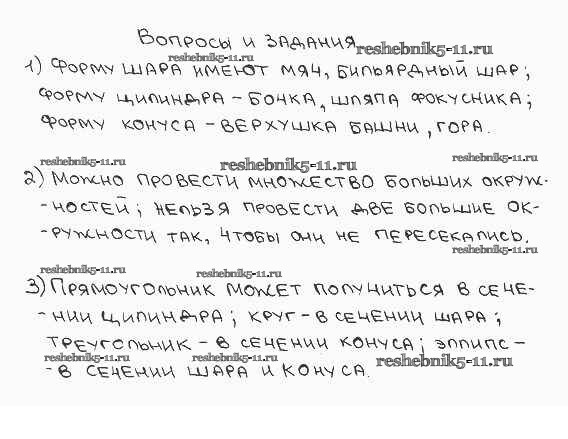 Вопросы и задания
reshebnik5-11.ru
reshebnik5-11.ru
1) Форму шара имеют мяч, бильярдный шар;
форму цилиндра - бочка, шляпа фокусника;
форму конуса - верхушка башни, гора.
reshebnik5-11.ru reshebnik5-11.ru reshebnik5-11.ru
2) Можно провести множество больших окруж-
-ностей; нельзя провести две большие ок-
-ружности так, чтобы они не пересекались.
reshebnik5-11.ru
reshebnik5-11.ru reshebnik5-11.ru
3) Прямоугольник может получиться в сече-
-нии цилиндра; круг - в сечении шара;
треугольник - в сечении конуса; эллипс -
reshebnik5-11.ru reshebnik5-11.ru reshebnik5-11.ru
- в сечении шара и конуса.